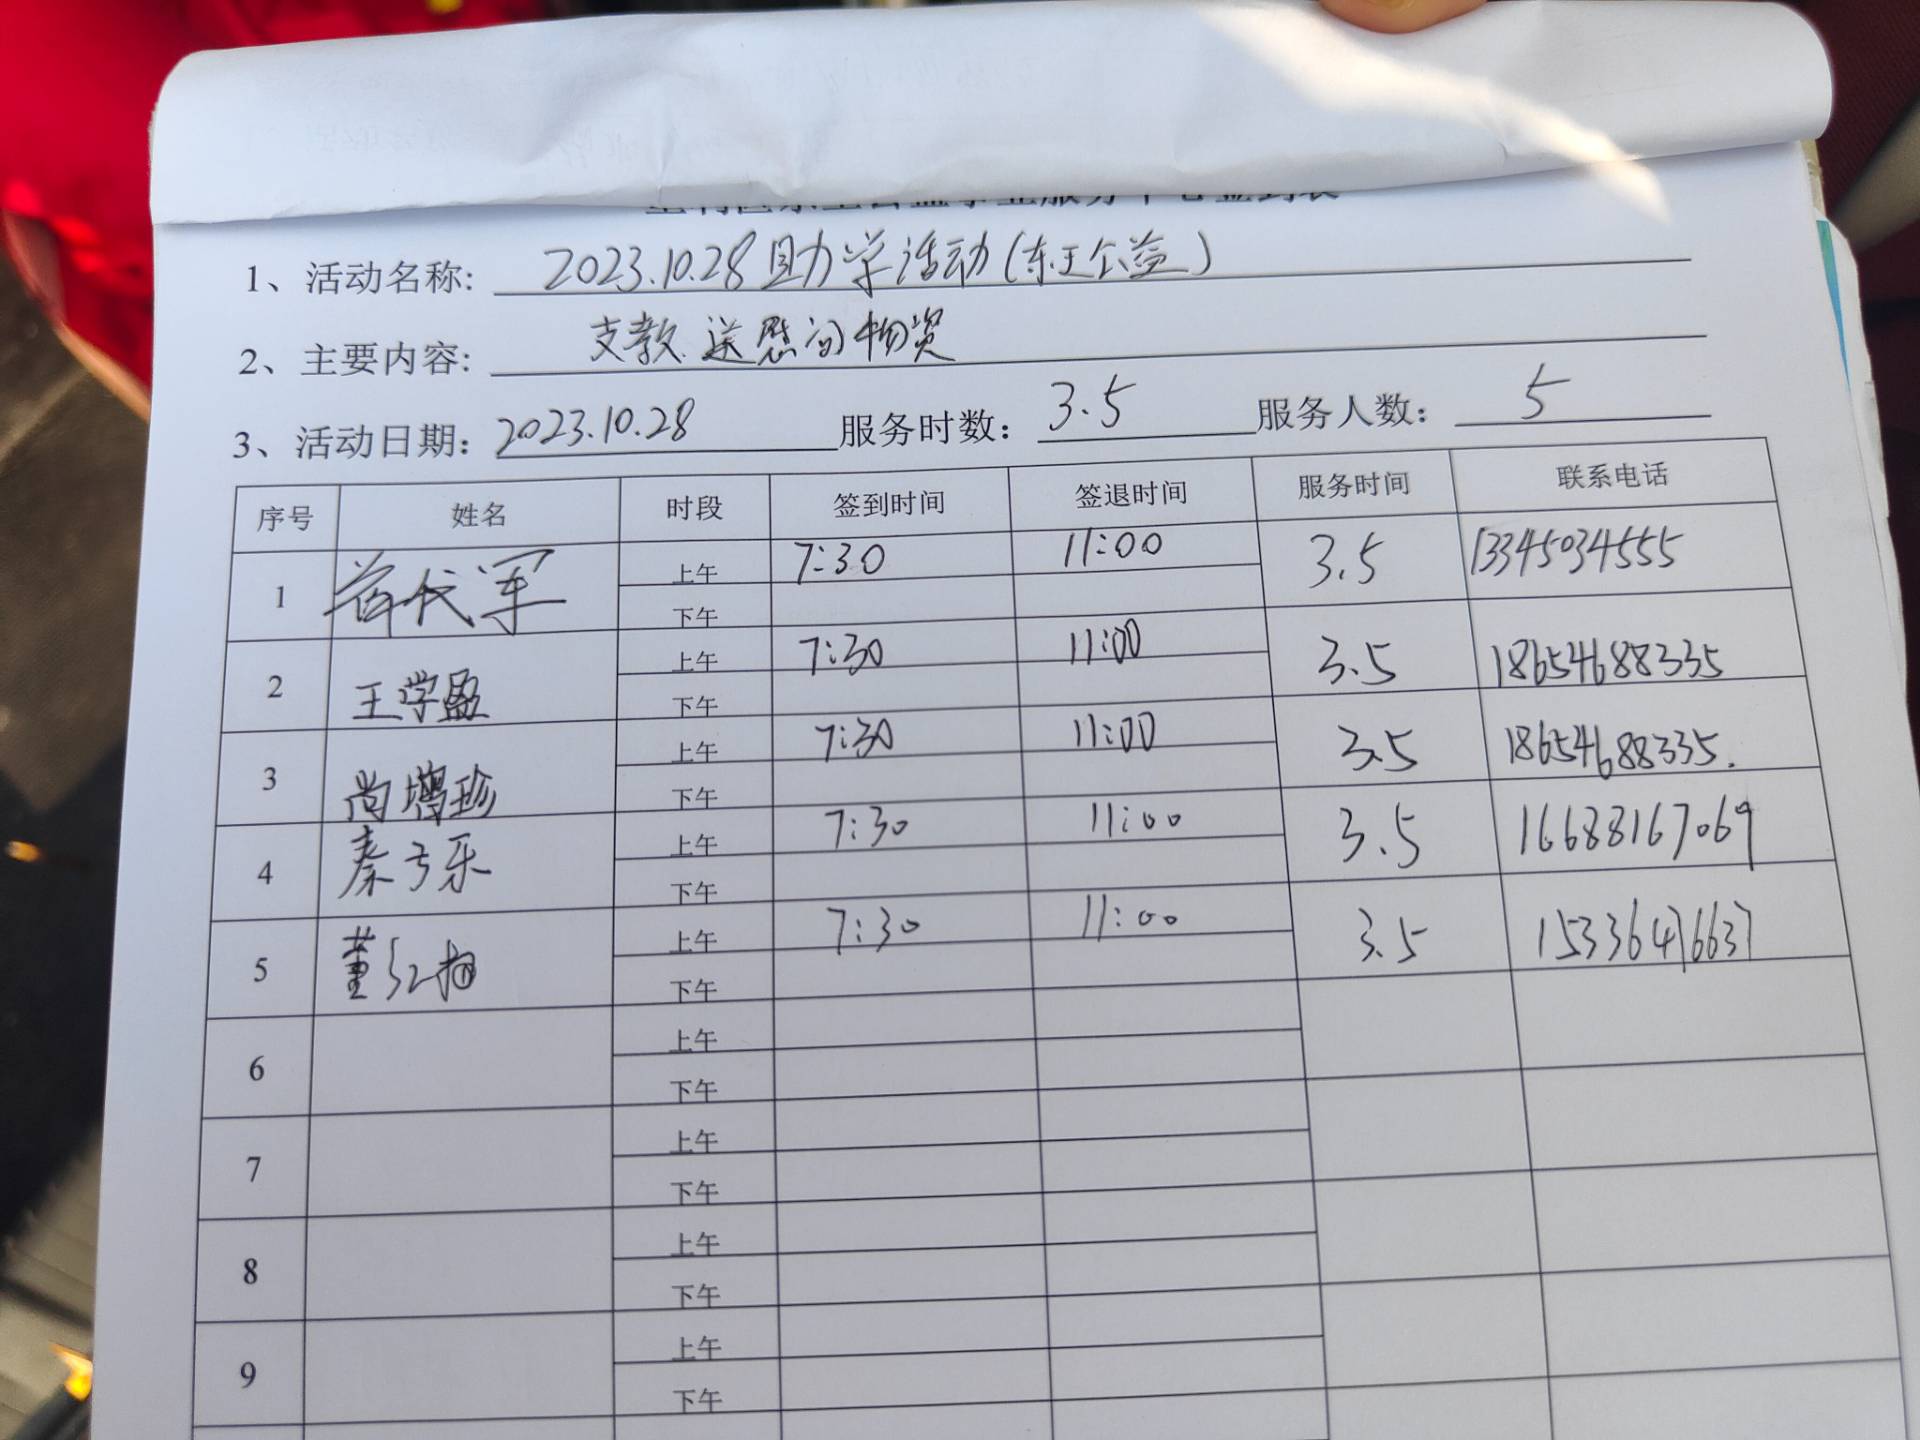 1、活动名称: 2023.10.28助学活动(东王公益)
2、主要内容: 支教 送慰问物资
3、活动日期: 2023.10.28 服务时数: 3.5 服务人数: 5
序号 姓名 时段 签到时间 签退时间 服务时间 联系电话
1 代军 上午 7:30 11:00 3.5 13345034555
下午
2 王学盈 上午 7:30 11:00 3.5 18654688335
下午
3 尚增珍 上午 7:30 11:00 3.5 18654688335.
下午
4 秦 乐 上午 7:30 11:00 3.5 16688167069
下午
5 董红 上午 7:30 11:00 3.5 15336476637
下午
6 上午
下午
7 上午
下午
8 上午
下午
9 上午
下午